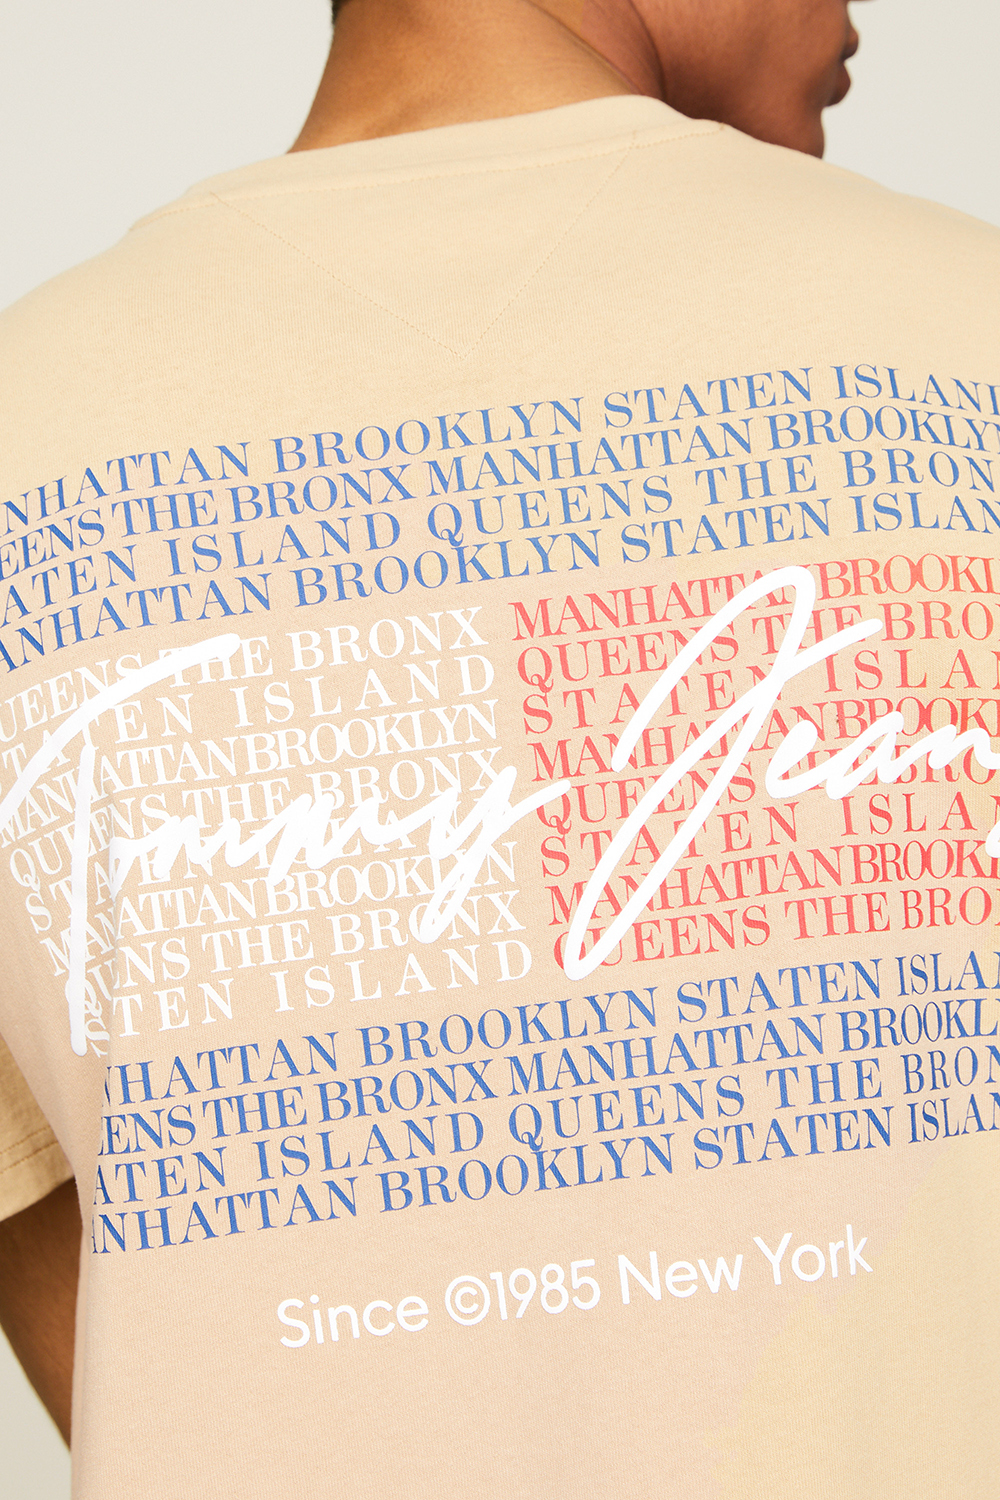 NHATTAN BROOKLYN STATEN ISLAN
EENS THE BRONX MANHATTAN BROOKLYN
ATEN ISLAND QUEENS THE BRON
ANHATTAN BROOKLYN STATEN ISLAN
QUEENS THE BRONX MANHATTAN BROOKL
STATEN ISLAND QUEENS THE BRO
MANHATTAN BROOKLYN STATEN ISLA
QUEENS THE BRONX MANHATTAN BROOKL
STATEN ISLAND QUEENS THE BRO
MANHATTAN BROOKLYN STATEN ISLA
QUEENS THE BRONX MANHATTAN BROOKL
STATEN ISLAND QUEENS THE BRO
Tommy Jeans
NHATTAN BROOKLYN STATEN ISLA
EENS THE BRONX MANHATTAN BROOKL
ATEN ISLAND QUEENS THE BRON
ANHATTAN BROOKLYN STATEN ISLAN
Since ©1985 New York